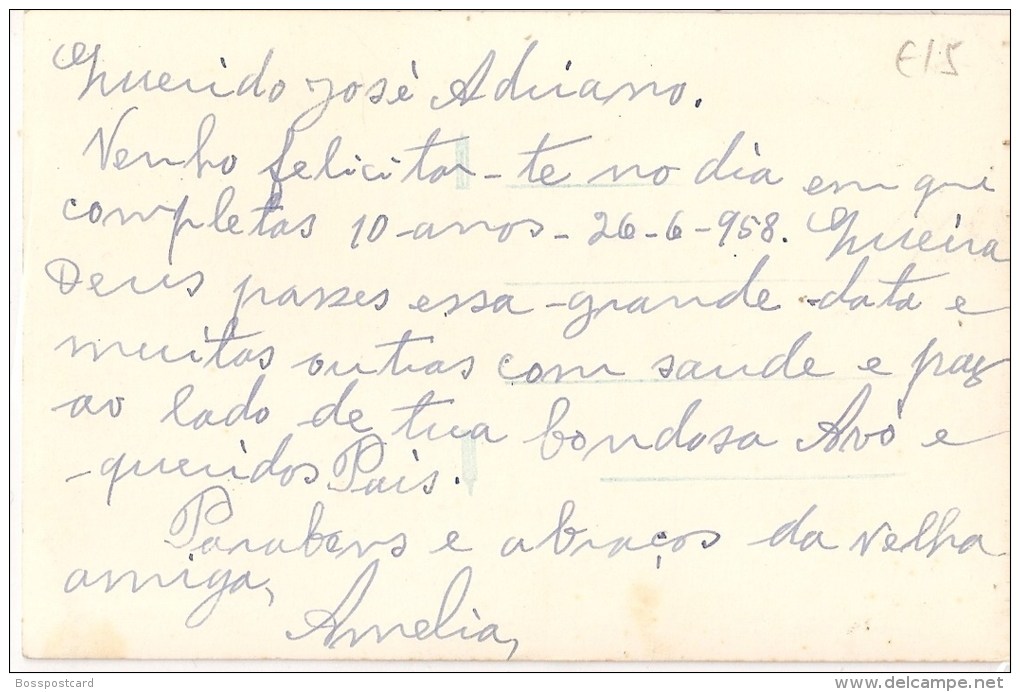 €15
Querido José Adriano.
Venho felicitar-te no dia em que
completas 10-anos-26-6-958. Queira
Deus passes essa-grande-data e
muitas outras com saude e paz
ao lado de tua bondosa Avó e
-queridos Pais.
Parabens e abraços da velha
amiga,
Amelia,
Bosspostcard
www.delcampe.net